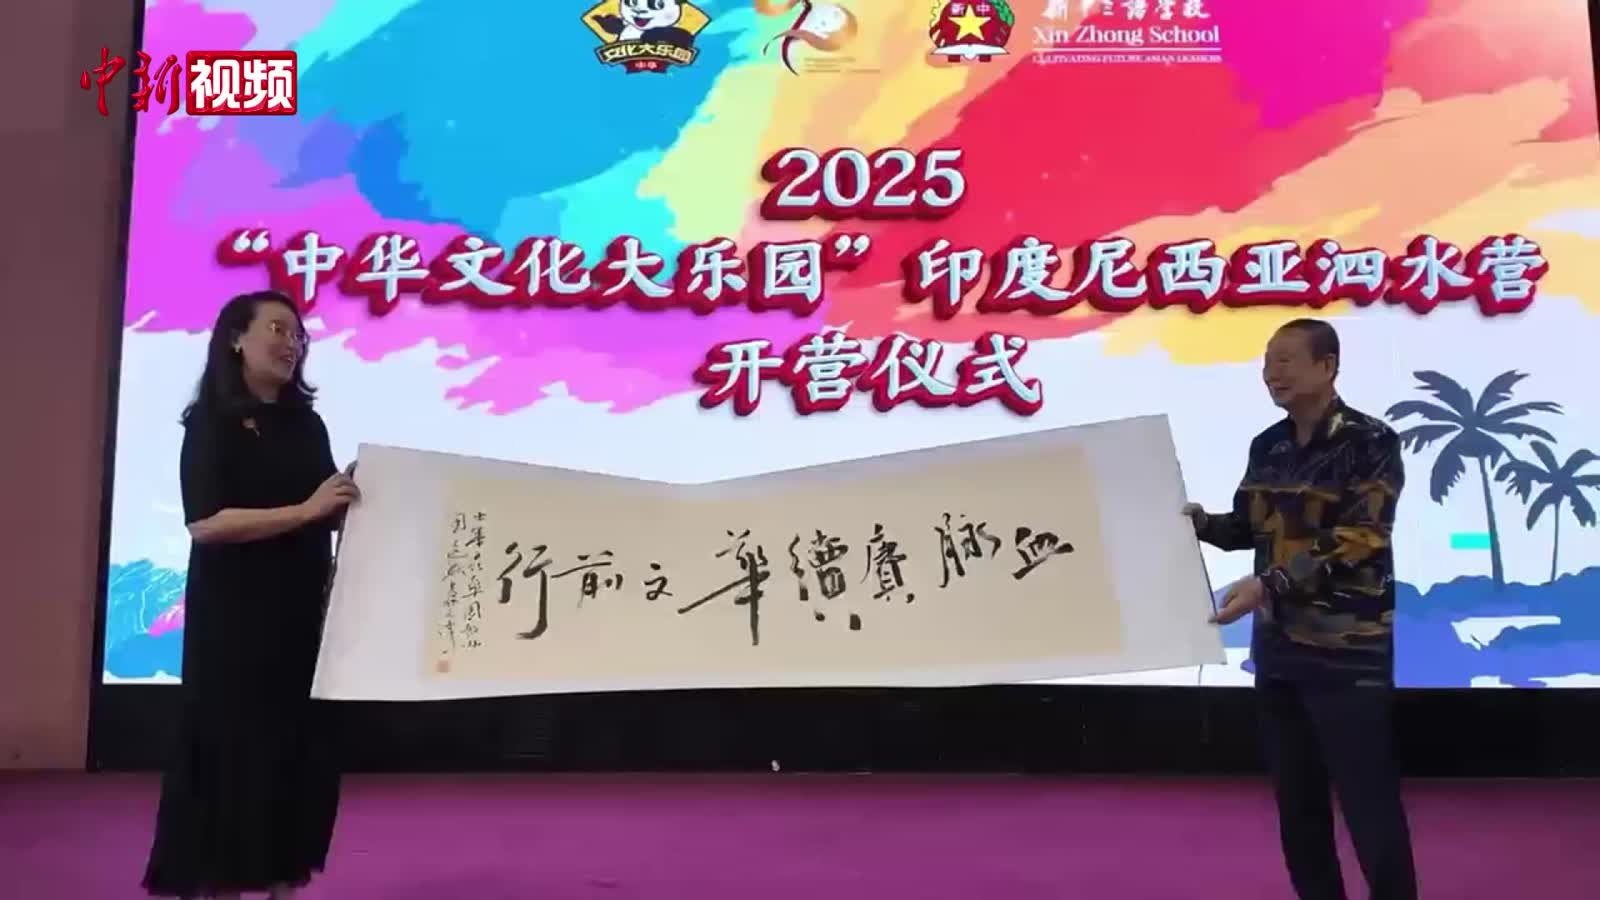 中新视频
文化大乐园
中华
新中
新中三語学校
Xin Zhong School
CULTIVATING FUTURE ASIAN LEADERS
2025
“中华文化大乐园”印度尼西亚泗水营
开营仪式
血脉賡續華文前行